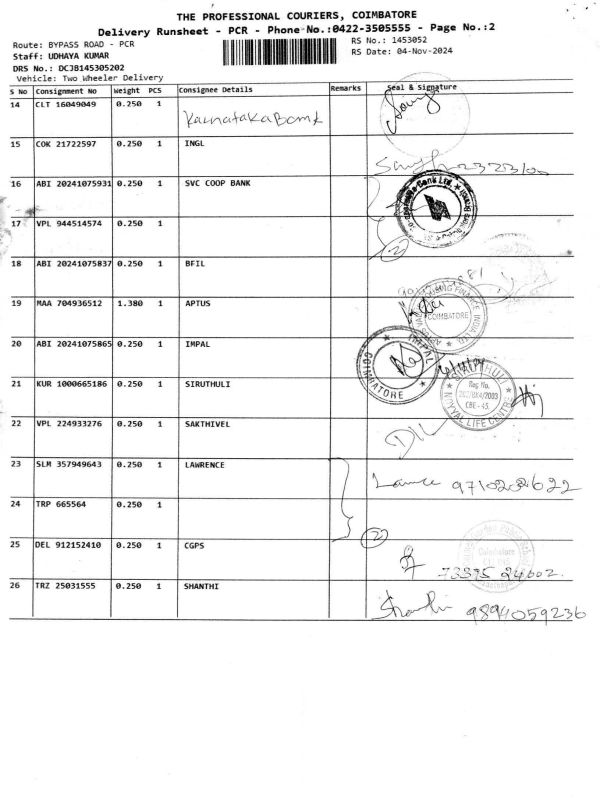 THE PROFESSIONAL COURIERS, COIMBATORE
Delivery Runsheet - PCR - Phone No.:0422-3505555 - Page No.:2
Route: BYPASS ROAD - PCR
RS No.: 1453052
Staff: UDHAYA KUMAR
RS Date: 04-Nov-2024
DRS No.: DCJB145305202
Vehicle: Two Wheeler Delivery
S No Consignment No Weight PCS Consignee Details Remarks Seal & Signature
14 CLT 16049049 0.250 1 Karnataka Bank
15 COK 21722597 0.250 1 INGL
16 ABI 20241075931 0.250 1 SVC COOP BANK
17 VPL 944514574 0.250 1
(2)
18 ABI 20241075837 0.250 1 BFIL
19 MAA 704936512 1.380 1 APTUS
COIMBATORE
20 ABI 20241075865 0.250 1 IMPAL
IMPAL
COIMBATORE
21 KUR 1000665186 0.250 1 SIRUTHULI
SIRUTHULI
Reg No.
CBE-45.
NOYYAL LIFE CENTRE
22 VPL 224933276 0.250 1 SAKTHIVEL
23 SLM 357949643 0.250 1 LAWRENCE
24 TRP 665564 0.250 1
(2)
25 DEL 912152410 0.250 1 CGPS
Coimbatore
73395 24602.
26 TRZ 25031555 0.250 1 SHANTHI
Shanthi 9894059236